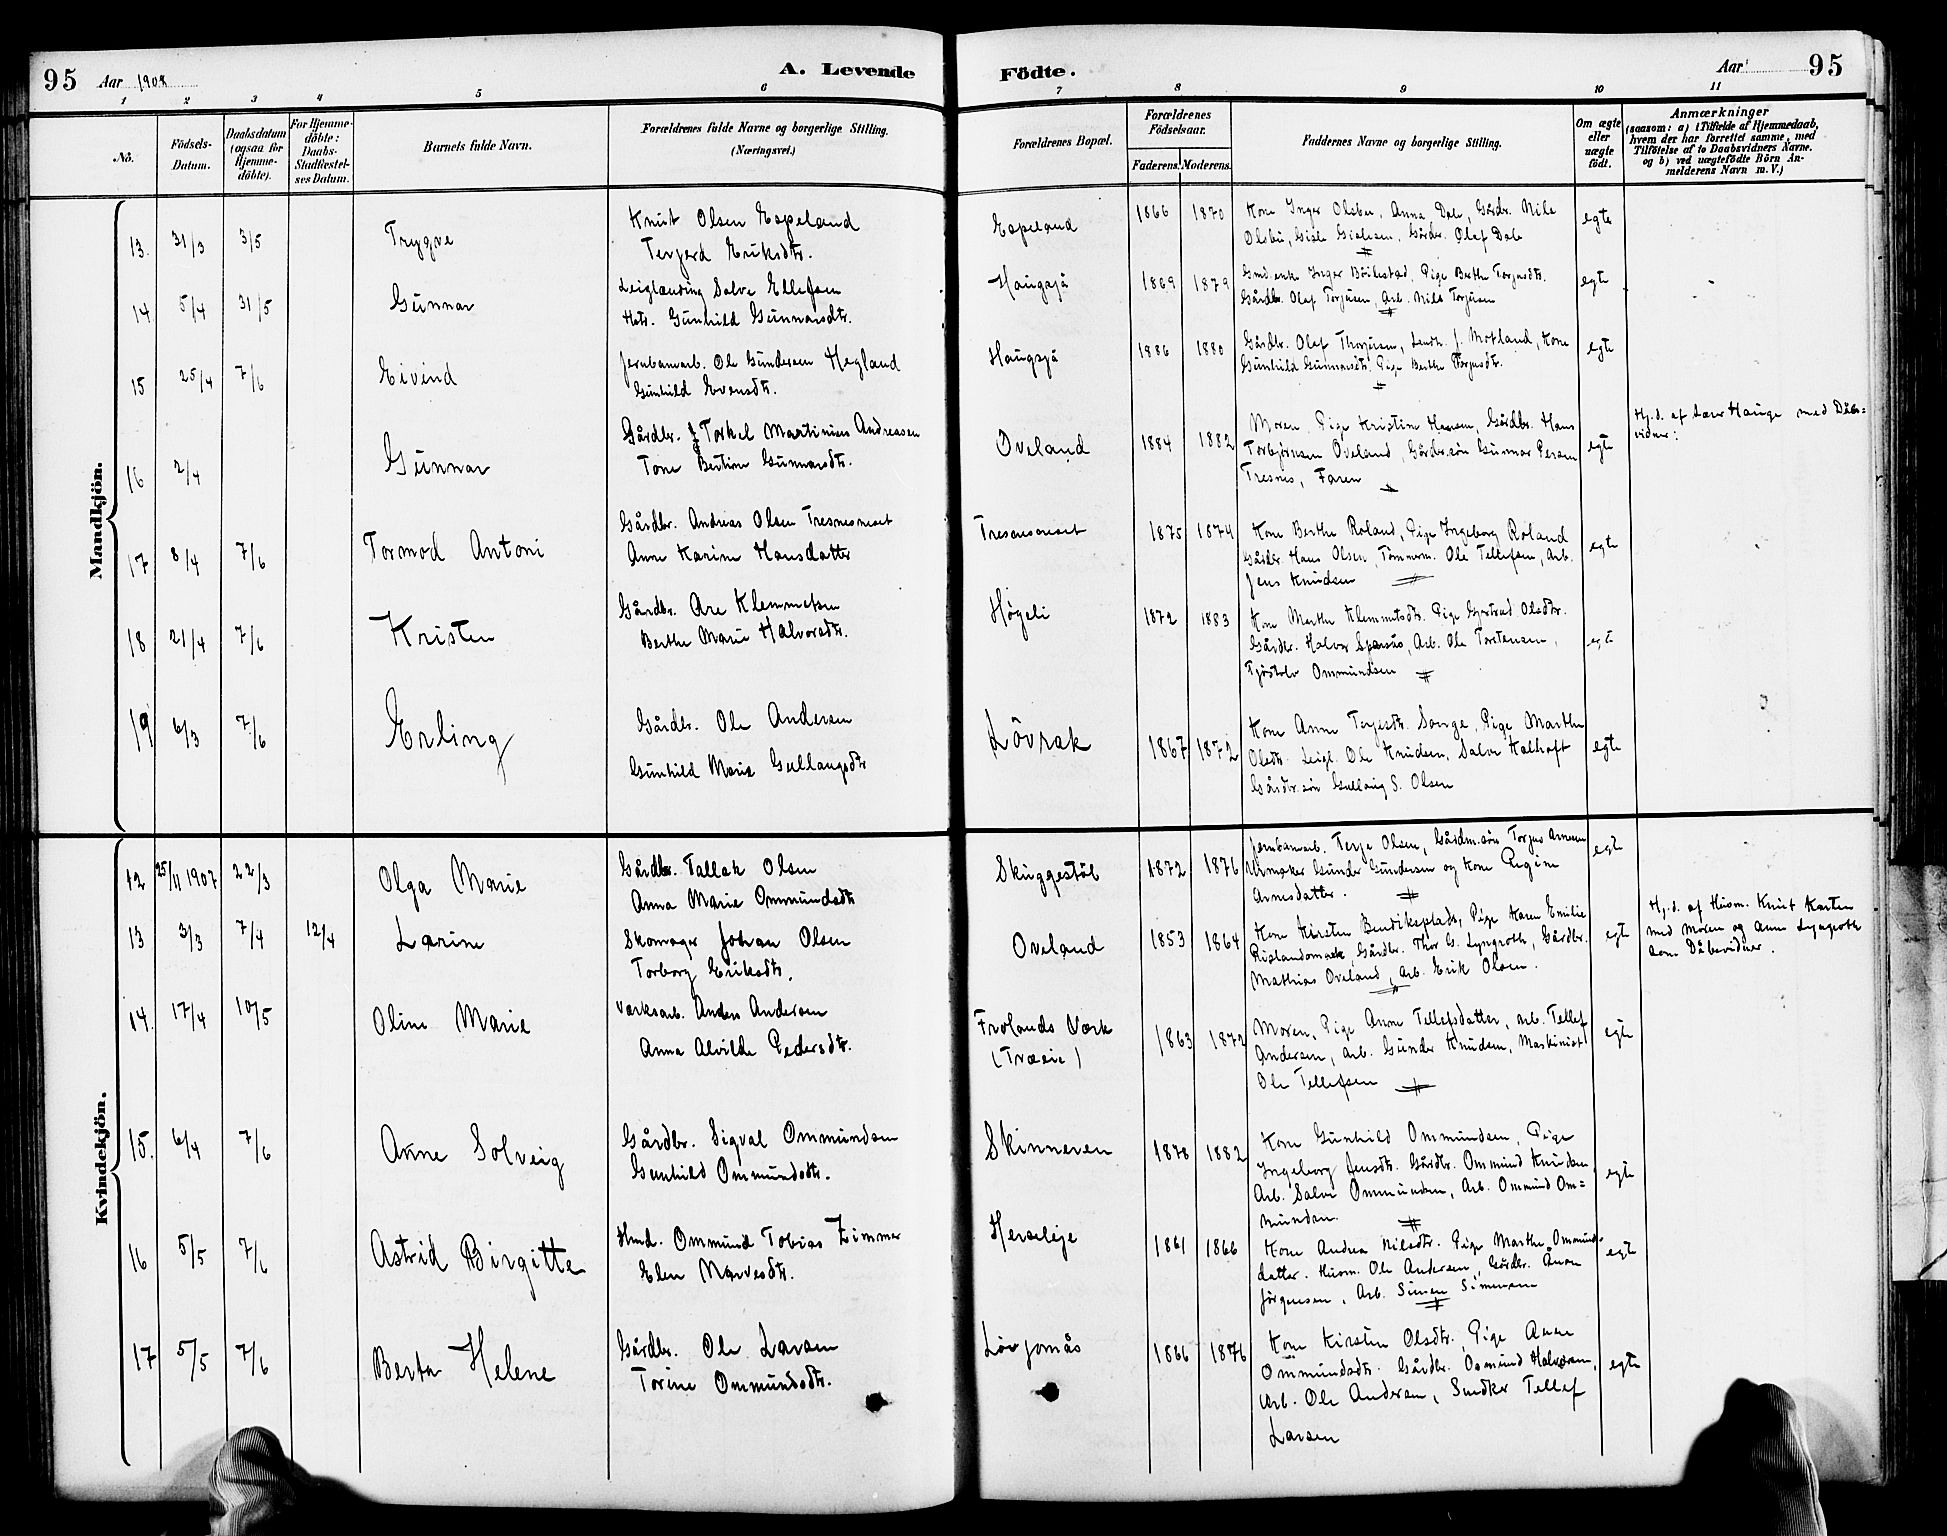 95 Aar 1908 A. Levende Födte. Aar 95
1 2 3 4 5 6 7 8 9 10 11
No. Födsels-Datum. Daabsdatum (ogsaa for Hjemme-döbte). For Hjemme-döbte: Daabs-Stadfæstel-ses Datum. Barnets fulde Navn. Forældrenes fulde Navne og borgerlige Stilling. (Næringsvei.) Forældrenes Bopæl. Forældrenes Födselsaar. Faderens. Moderens. Faddernes Navne og borgerlige Stilling. Om ægte eller uægte födt. Anmærkninger (saasom: a) i Tilfælde af Hjemmedaab, hvem der har forrettet samme, med Tilföielse af to Daabsvidners Navne. og b) ved uægtefödte Börn An-melderens Navn m. V.)
Mandkjön.
13. 31/3 3/5 Trygve
Knut Olsen Espeland
Terjerd Eriksdtr.
Espeland 1866 1870
Kone Inger Olsbu, Anna Dale, Gårdr. Nils
Olsbu, Gisle Gislesen, Gårdbr. Olaf Dale
egte
14 5/4 31/5 Gunnar
Leiglænding Salve Ellefsen
Hstr. Gunhild Gunnarsdtr.
Haugsjå 1869 1879
Gmd.enke Inger Böilestad, Pige Berthe Torjusdtr.
Gårdbr. Olaf Torjusen, Arb. Nils Torjusen
egte
15 25/4 7/6 Eivind
Jernbanearb. Ole Gundersen Hegland
Gunhild Evensdtr.
Haugsjå 1886 1880
Gårdbr. Olaf Thorjusen, J. Mortland, Kone
Gunhild Gunnarsdt. Pige Berthe Torjusdtr.
egte
16 2/4 Gunnar
Gårdbr. Torkel Martinius Andreassen
Tone Bertine Gunnarsdtr.
Oveland 1884 1882
Moren, Pige Kristine Hansen, Gårdbr. Hans
Torbjörnsen Oveland, Gårdbr.sön Gunnar Persen
Tresnes, Faren
egte
Hj.d. af Lærer Hauge med Dåbs=
vidner:
17 8/4 7/6 Tormod Antoni
Gårdbr. Andreas Olsen Tresnesneset
Anne Karine Hansdatter
Tresnesneset 1875 1874
Kone Berthe Roland, Pige Ingeborg Roland
Gårdbr. Hans Olsen, Tömmerm. Ole Tellefsen, Arb.
Jens Knudsen
egte
18 21/4 7/6 Kristen
Gårdbr. Are Klemmetsen
Berthe Marie Halvorsdtr.
Högeli 1872 1883
Kone Marthe Klemmetsdtr. Pige Gjertrud Olsdtr.
Gårdbr. Halvor Sparsås, Arb. Ole Torstensen,
Tjöstolv Ommundsen
egte
19 6/3 7/6 Erling
Gårdbr. Ole Andersen
Gunhild Marie Gullaugsdtr
Lövrak 1867 1872
Kone Anne Terjesdtr. Songe, Pige Marthe
Olsdtr. Leigl. Ole Knudsen, Salve Kalhoft
Gårdbr.sön Gullaug S. Olsen
egte
Kvindekjön.
12 25/11 1907 22/3 Olga Marie
Gårdbr. Tallak Olsen
Anna Marie Ommundsdtr
Skuggestöl 1872 1876
Jernbanearb. Terje Olsen, Gårdm.sön Torjus Arnesen
Urmaker Gunder Gundersen og Kone Regine
Arnesdatter.
egte
13 3/3 7/4 12/4 Larine
Skomager Johan Olsen
Torborg Eriksdtr.
Oveland 1853 1864
Kone Kirsten Bendiksplads, Pige Karen Emilie
Rislandsmark, Gårdbr. Thor G. Lyngroth, Gårdbr.
Mathias Oveland, Arb. Erik Olsen.
egte
Hj.d. af Husm. Knut Karten
med Moren og Anne Lyngroth
som Dåbsvidner.
14. 17/4 10/5 Oline Marie
Værksarb. Anders Andersen
Anna Alvilde Pedersdtr.
Frolands Værk
(Træsie) 1863 1872
Moren, Pige Anne Tellefsdatter, Arb. Tellef
Andersen, Arb. Gunder Knudsen, Maskinist
Ole Tellefsen
egte
15. 6/4 7/6 Anne Solveig
Gårdbr. Sigval Ommundsen
Gunhild Ommundsdtr.
Skinneren 1878 1882
Kone Gunhild Ommundsen, Pige
Ingeborg Jensdtr. Gårdbr. Ommund Knudsen
Arb. Salve Ommundsen, Arb. Ommund Om=
mundsen.
egte
16 5/5 7/6 Astrid Birgitte
Hmd. Ommund Tobias Zimmer
Elen Narvesdtr.
Herseleje 1861 1866
Kone Andrea Nilsdtr. Pige Marthe Ommunds-
datter. Husm. Ole Andersen, Gårdbr. Anon
Jörgensen, Arb. Simen Simensen
egte
17 5/5 7/6 Berta Helene
Gårdbr. Ole Larsen
Torine Ommundsdtr.
Lövjomås 1866 1876
Kone Kirsten Olsdtr. Pige Anne
Ommundsdtr. Gårdbr. Osmund Halvorsen,
Arb. Ole Andersen, Snedker Tellef
Larsen
egte